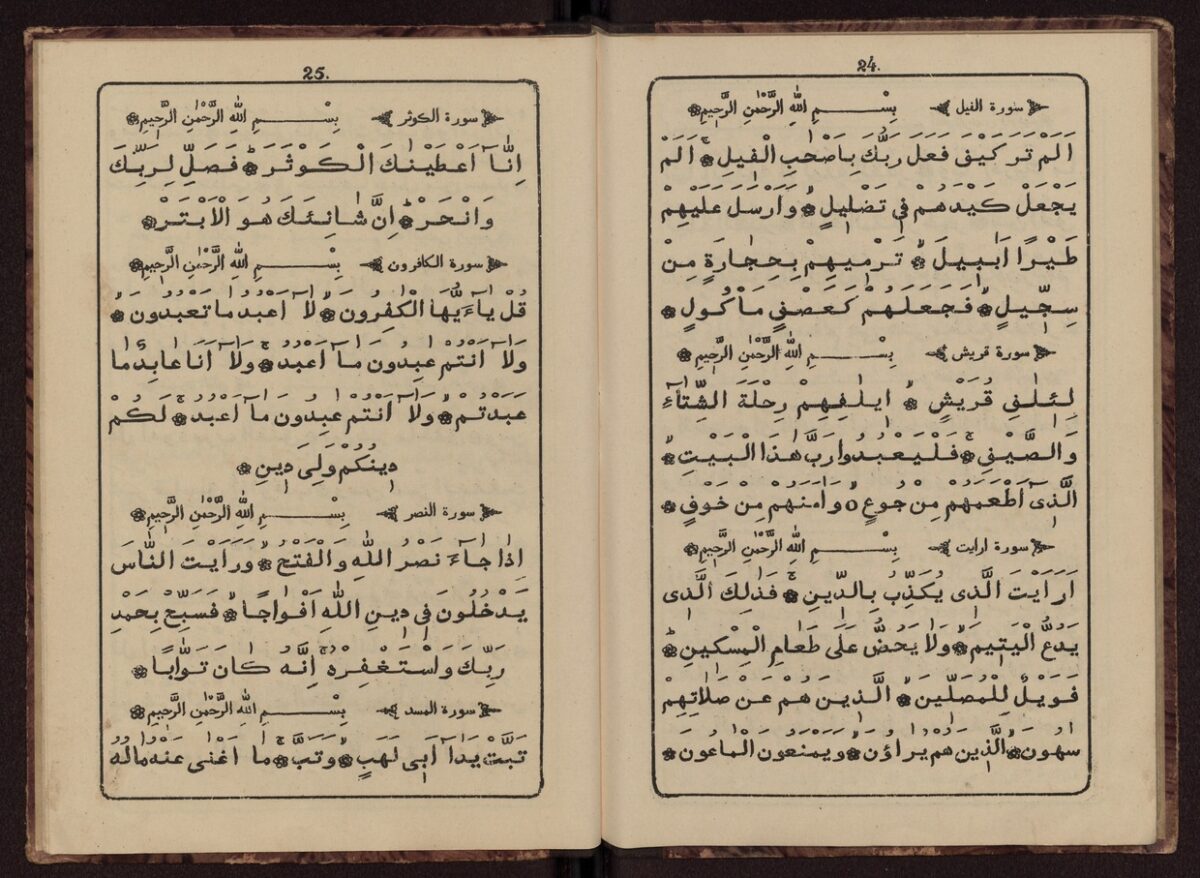 24.
سورة الفيل بِسْمِ اللّٰهِ الرَّحْمٰنِ الرَّحِيمِ
اَلَمْ تَرَ كَيْفَ فَعَلَ رَبُّكَ بِاَصْحٰبِ الْفِيلِ ۞ اَلَمْ
يَجْعَلْ كَيْدَهُمْ فِى تَضْلِيلٍ ۞ وَاَرْسَلَ عَلَيْهِمْ
طَيْرًا اَبٰبِيلَ ۞ تَرْمِيهِمْ بِحِجٰارَةٍ مِنْ
سِجِّيلٍ ۞ فَجَعَلَهُمْ كَعَصْفٍ مَاْكُولٍ ۞
سورة قريش بِسْمِ اللّٰهِ الرَّحْمٰنِ الرَّحِيمِ
لِئِلٰفِ قُرَيْشٍ ۞ اٖيلٰفِهِمْ رِحْلَةَ الشِّتٰآءِ
وَالصَّيْفِ ۞ فَلْيَعْبُدُوا رَبَّ هٰذَا الْبَيْتِ ۞
الَّذِىٓ اَطْعَمَهُمْ مِنْ جُوعٍ ۞ وَاٰمَنَهُمْ مِنْ خَوْفٍ ۞
سورة ارايت بِسْمِ اللّٰهِ الرَّحْمٰنِ الرَّحِيمِ
اَرَاَيْتَ الَّذِى يُكَذِّبُ بِالدِّينِ ۞ فَذٰلِكَ الَّذِى
يَدُعُّ الْيَتِيمَ ۞ وَلَا يَحُضُّ عَلٰى طَعٰامِ الْمِسْكِينِ ۞
فَوَيْلٌ لِلْمُصَلِّينَ ۞ الَّذِينَ هُمْ عَنْ صَلَاتِهِمْ
سٰهُونَ ۞ الَّذِينَ هُمْ يُرَاؤُنَ ۞ وَيَمْنَعُونَ الْمٰاعُونَ ۞
25.
سورة الكوثر بِسْمِ اللّٰهِ الرَّحْمٰنِ الرَّحِيمِ
اِنّٰآ اَعْطَيْنٰكَ الْكَوْثَرَ ۞ فَصَلِّ لِرَبِّكَ
وَانْحَرْ ۞ اِنَّ شٰانِئَكَ هُوَ الْاَبْتَرُ ۞
سورة الكافرون بِسْمِ اللّٰهِ الرَّحْمٰنِ الرَّحِيمِ
قُلْ يٰٓاَيُّهَا الْكٰفِرُونَ ۞ لَآ اَعْبُدُ مٰا تَعْبُدُونَ ۞
وَلَآ اَنْتُمْ عٰبِدُونَ مٰآ اَعْبُدُ ۞ وَلَآ اَنَا عٰابِدٌ مٰا
عَبَدْتُمْ ۞ وَلَآ اَنْتُمْ عٰبِدُونَ مٰآ اَعْبُدُ ۞ لَكُمْ
دِينُكُمْ وَلِىَ دِينِ ۞
سورة النصر بِسْمِ اللّٰهِ الرَّحْمٰنِ الرَّحِيمِ
اِذٰا جٰآءَ نَصْرُ اللّٰهِ وَالْفَتْحُ ۞ وَرَاَيْتَ النّٰاسَ
يَدْخُلُونَ فِى دِينِ اللّٰهِ اَفْوٰاجًا ۞ فَسَبِّحْ بِحَمْدِ
رَبِّكَ وَاسْتَغْفِرْهُ اِنَّهُ كٰانَ تَوّٰابًا ۞
سورة المسد بِسْمِ اللّٰهِ الرَّحْمٰنِ الرَّحِيمِ
تَبَّتْ يَدَآ اَبِى لَهَبٍ وَتَبَّ ۞ مٰآ اَغْنٰى عَنْهُ مٰالُهُ